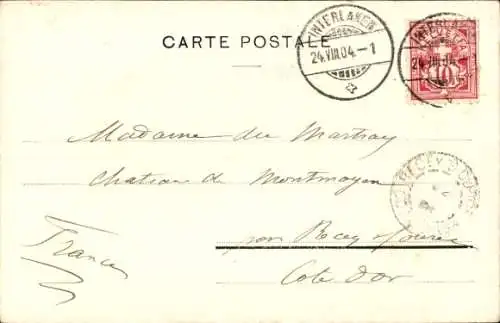 CARTE POSTALE
INTERLAKEN
24.VIII.04.-1
INTERLAKEN
24.VIII.04.-
HELVETIA
10
Madame du Martray
Chateau de Montmoyen
par Recey s/Ource
Cote d'or
France
RECEY S OURCE